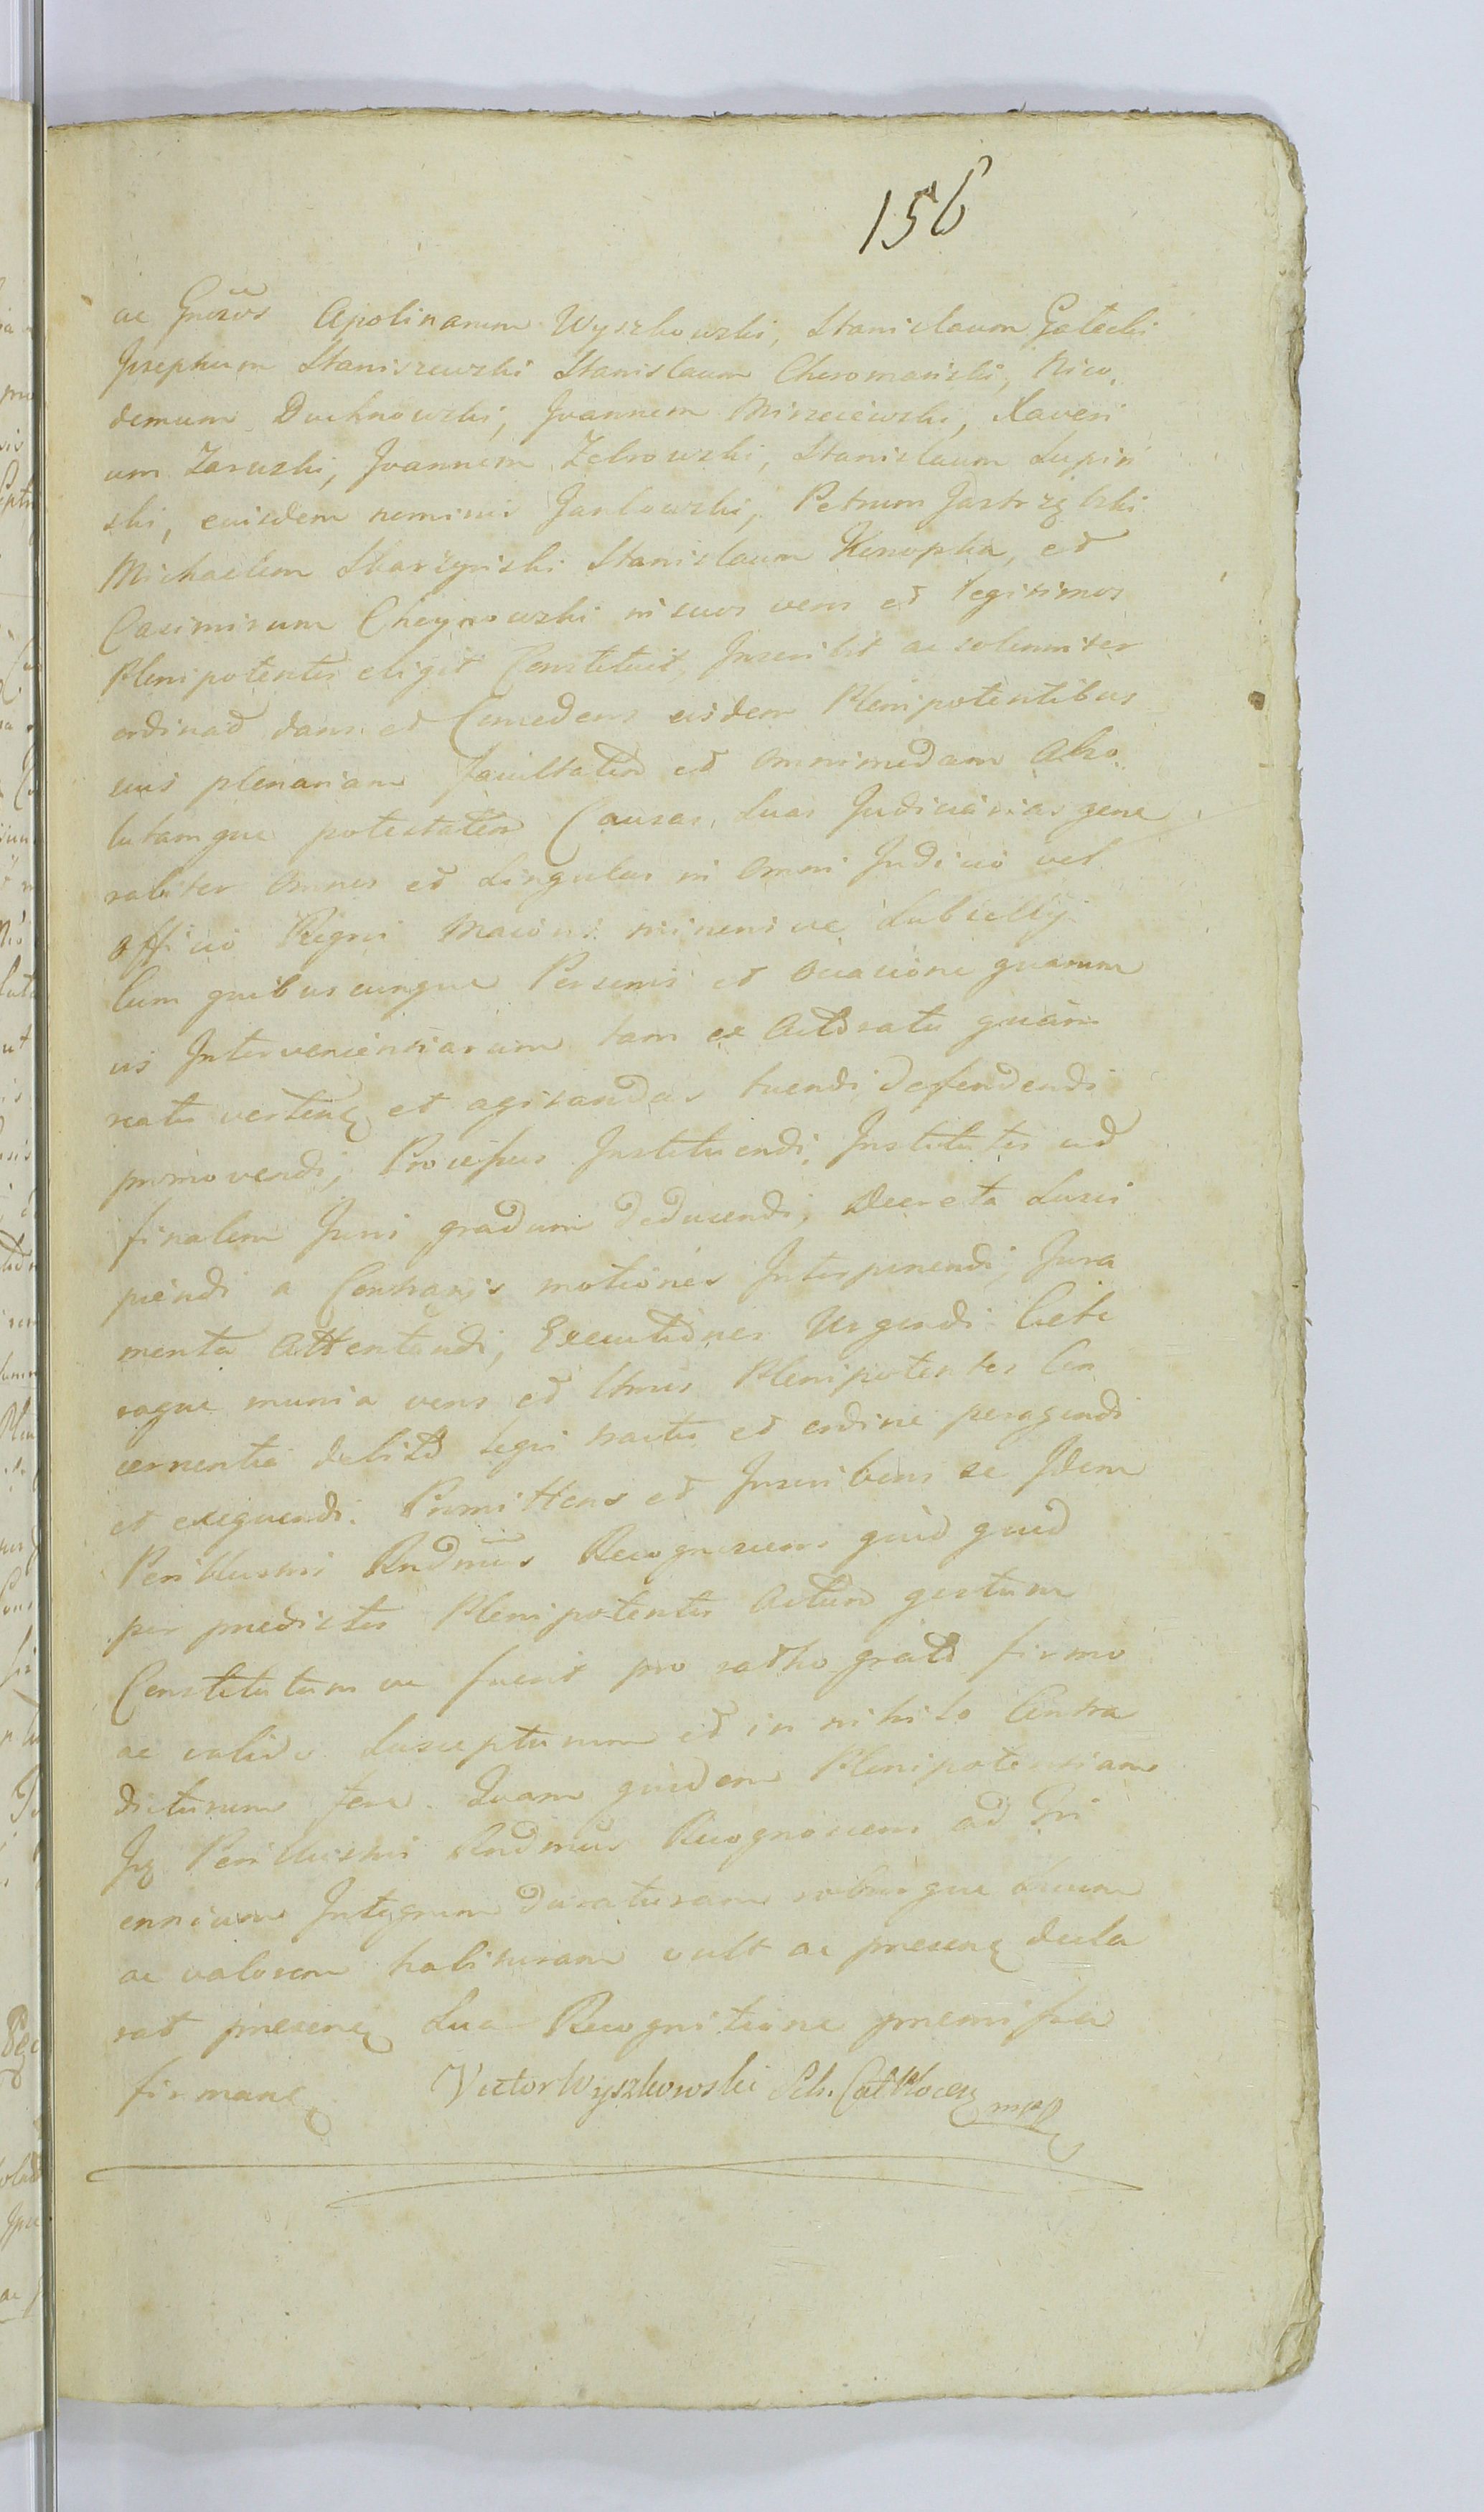 156
ac Gnrosos Apolinarem Wyszkowski, Stanislaum Gałecki
Josephum Staniszewski Stanislaum Choromański, Nico,
demum Duchnowski, Joannem Mirzeiewski, Xaveri
um Zaruski, Joannem Zebrowski, Stanislaum Lupiń
ski, eiusdem nominis Jankowski, Petrum Jastrzębski
Michaelem Skarzyński Stanislaum Konopka, et
Casimirum Choynowski in suos veros et legitimos
Plenipotentes eligit Constituit Inscribit ac solenniter
ordinat dans et Concedens eisdem Plenipotentibus
suis plenariam facultatem et omnimodam Abso,
lutamque potestatem Causas Suas Judiciarias gene
raliter omnes et Singulas in omni Judicio vel
officio Regni Maioris minoris ve Subsellÿ
Cum quibuscunque Personis et occasione quarum
vis Intervenientiarum tam ex Actoratu quam
reatu verten et agitandas tuendi, defendendi
promovendi, Processus Instituendi, Institutos ad
finalem Juris gradum deducendi, Decreta Susci
piendi a Contrarÿs motiones Interponendi, Jura
menta Attentandi, Executiones Urgendi Cete
raque munia veros et ltmos Plenipotentes Con
cernentia debito legis tractu et ordine peragendi
et exequendi. Promittens et Inscribens se Idem
Perillustris Rndmus Recognoscens quid quid
per praedictos Plenipotentes Actum gestum
Constitutum ve fuerit pro ratho grato firmo
ac valido Suscepturum et in nihilo Contra
dicturum fere. Quam quidem Plenipotentiam
Perillustris Rndmus Recognoscens ad Tri
ennium Integrum duraturam roburque suum
ac valorem habituram vult ac presen decla
rat presen Sua Recognitione premissa
firman
Victor Wyszkowski Sch. Cat Płocen mpp